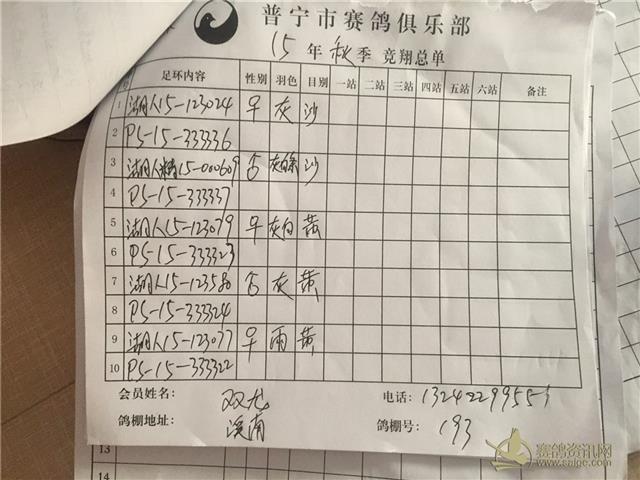 普宁市赛鸽俱乐部
15年秋季 竞翔总单
足环内容 性别 羽色 目别 一站 二站 三站 四站 五站 六站 备注
1 湖人15-123024 早 灰 沙
2 PS-15-333336
3 15-000609 灰白条 沙
4 PS-15-333337
5 湖人15-123079 早 灰白 黄
6 PS-15-333323
7 湖人15-123580 灰 黄
8 PS-15-333324
9 湖人15-123077 早 雨 黄
10 PS-15-333322
会员姓名: 双龙 电话: 13242299551
鸽棚地址: 溪南 鸽棚号: 193
13
14
赛鸽资讯网
www.saige.com